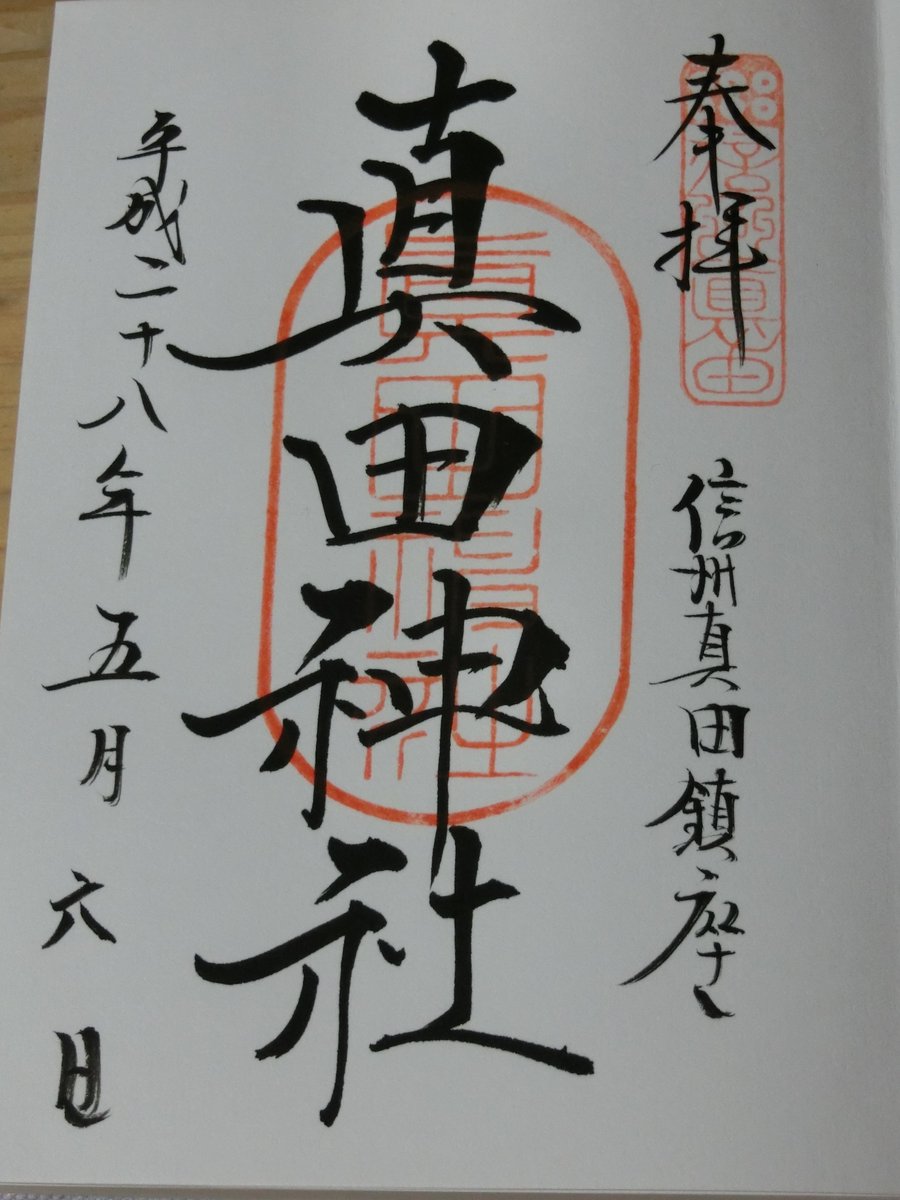 奉拝
信州真田鎮座
真田神社
平成二十八年五月六日